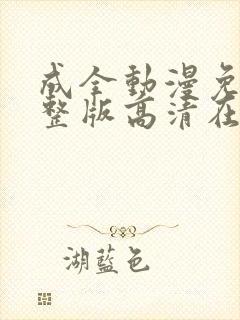 成全動漫免
整版高清在
湖藍色